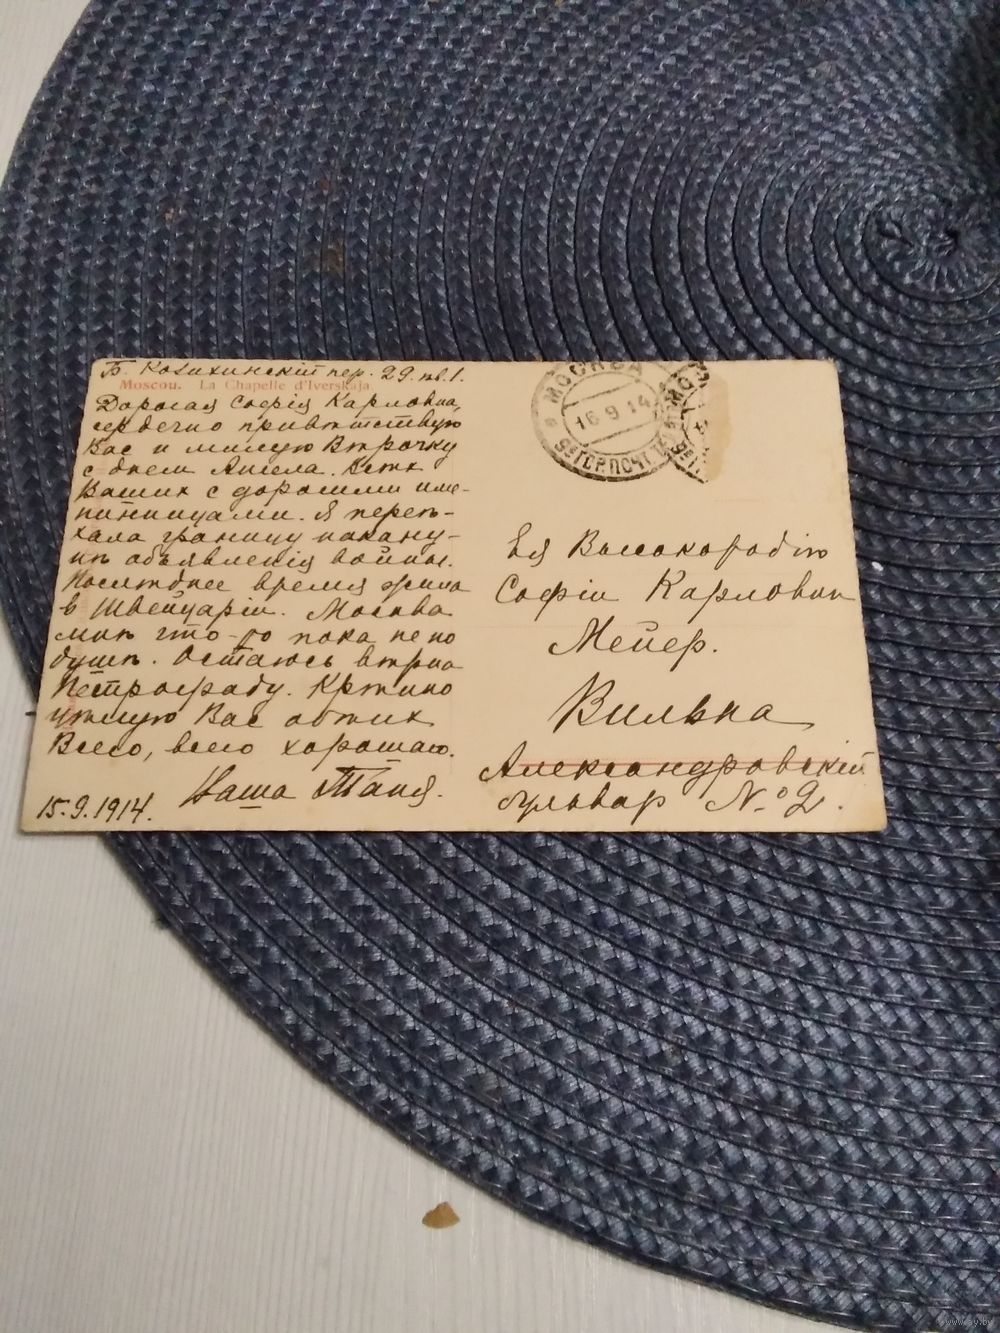 Б. Козихинскій пер. 29. кв. 1.
Moscou. La Chapelle d'Iverskaja.
Дорогая Софія Карловна,
сердечно привѣтствую
Вас и милую Вѣрочку
с днем Ангела. Всѣх
Ваших с дорогими име-
нинницами. Я переѣ-
хала границу накану-
нѣ объявленія войны.
Послѣднее время жила
в Швейцаріи. Москва
мнѣ что-то пока не по
душѣ. Остаюсь вѣрна
Петрограду. Крѣпко
цѣлую Вас всѣх
Всего, всего хорошаго.
Ваша Таня.
15.9.1914.
МОСКВА
16 9 14
ГОР. ПОЧТ.
МОС
Ея Высокородію
Софіи Карловнѣ
Мейер.
Вильна
Александровскій
бульвар № 2.
www.ay.by